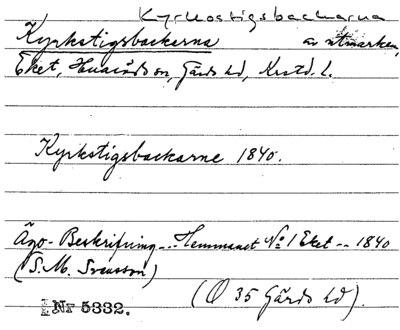 Kyrkostigsbackarna
Kyrkstigsbackarna av utmarken,
Eket, Huaröds sn, Gärds hd, Krstd. l.
Kyrkstigsbackarne 1840.
Ägo-Beskrifning... Hemmanet No 1 Eket -- 1840
(S. M. Svensson)
Nr 5332. (Ö 35 Gärds hd).